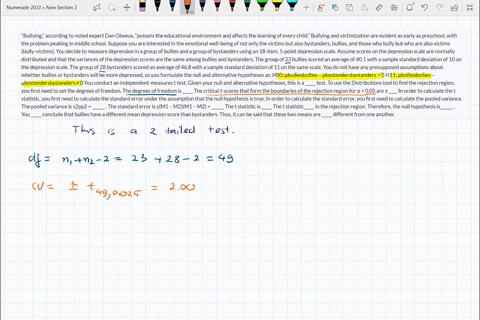 Numerade 2022 » New Section 2
"Bullying," according to noted expert Dan Olweus, "poisons the educational environment and affects the learning of every child." Bullying and victimization are evident as early as preschool, with
the problem peaking in middle school. Suppose you are interested in the emotional well-being of not only the victims but also bystanders, bullies, and those who bully but who are also victims
(bully-victims). You decide to measure depression in a group of bullies and a group of bystanders using an 18-item, 5-point depression scale. Assume scores on the depression scale are normally
distributed and that the variances of the depression scores are the same among bullies and bystanders. The group of 23 bullies scored an average of 40.1 with a sample standard deviation of 10 on
the depression scale. The group of 28 bystanders scored an average of 46.8 with a sample standard deviation of 11 on the same scale. You do not have any presupposed assumptions about
whether bullies or bystanders will be more depressed, so you formulate the null and alternative hypotheses as: H00: μbulliesbullies – μbystandersbystanders = 0 H11: μbulliesbullies –
μbystandersbystanders ≠ 0 You conduct an independent-measures t test. Given your null and alternative hypotheses, this is a ____ test. To use the Distributions tool to find the rejection region,
you first need to set the degrees of freedom. The degrees of freedom is ____. The critical t-scores that form the boundaries of the rejection region for α = 0.05 are ± ___. In order to calculate the t
statistic, you first need to calculate the standard error under the assumption that the null hypothesis is true. In order to calculate the standard error, you first need to calculate the pooled variance.
The pooled variance is s2pp2 = _____. The standard error is s(M1 – M2)(M1 – M2) = _____. The t statistic is ____. The t statistic_____ in the rejection region. Therefore, the null hypothesis is_____.
You ____ conclude that bullies have a different mean depression score than bystanders. Thus, it can be said that these two means are ____ different from one another.
This is a 2 tailed test.
df = n1+n2-2 = 23 +28-2 = 49
CV = ± t49,0.025 = 2.00